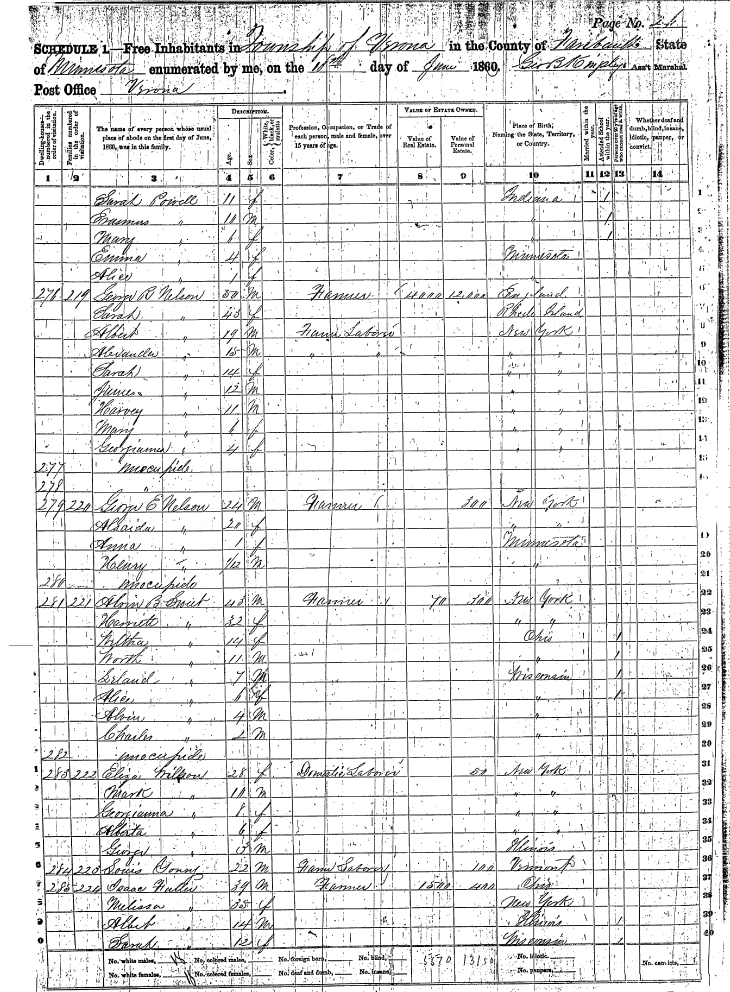 Page No. 26
SCHEDULE 1.—Free Inhabitants in Township of Verona in the County of Faribault State
of Minnesota enumerated by me, on the day of June 1860. Geo B Ass't Marshal
Post Office Verona
Dwelling-houses—numbered in the order of visitation. Families numbered in the order of visitation. The name of every person whose usual place of abode on the first day of June, 1860, was in this family. DESCRIPTION. Age. Sex. Color, White, black, or mulatto. Profession, Occupation, or Trade of each person, male and female, over 15 years of age. VALUE OF ESTATE OWNED. Value of Real Estate. Value of Personal Estate. Place of Birth, Naming the State, Territory, or Country. Married within the year. Attended School within the year. Whether deaf and dumb, blind, insane, idiotic, pauper, or convict.
1 2 3 4 5 6 7 8 9 10 11 12 13 14
Sarah Powell 11 f Indiana / 1
Erasmus " 10 M " /
Mary " 6 f " /
Emma " 4 f Minnesota
Alice " 1 f "
276 219 George B Nelson 50 M Farmer 4000 12,000 England
Sarah " 45 f Rhode Island
Albert " 19 M Farm Labori New York
Alexander " 15 M " " " "
Sarah " 14 f " "
James " 12 M " "
Harvey " 11 M " "
Mary " 6 f " "
Georgianna " 4 f " "
277 unocupide
278 "
279 220 George E Nelson 24 M Farmer 300 New York
Alsaida " 20 f " "
Anna " 1 f Minnesota
Henry " /12 M "
280 unocupide
281 221 Alvin B Sweet 43 M Farmer 70 300 New York 22
Harriett " 32 f " "
" 14 f Ohio / 24
North " 11 M " / 25
Leland " 7 M Wisconsin / 26
Alice " 6 f " / 27
Alvin " 4 M " 28
Charles " 2 M " 29
282 unocupide
283 222 Eliza Willson 28 f Domestic Labori 50 New York 31
Mark " 10 M " " 32
Georgianna " 8 f " " 33
Alberta " 6 f " " 34
George " 3 M Illinois 35
284 223 Louis Young 22 M Farm Laborer 100 Vermont 36
285 224 Isaac 39 M Farmer 1500 400 Ohio
Melissa " 35 f New York
Albert " 14 M Illinois / 39
Sarah " 12 f Wisconsin / 40
No. white males, 18 No. colored males, No. foreign born, No. blind, 5570 13150 No. idiotic, No. convicts,
No. white females, No. colored females, No. deaf and dumb, No. insane, No. paupers,